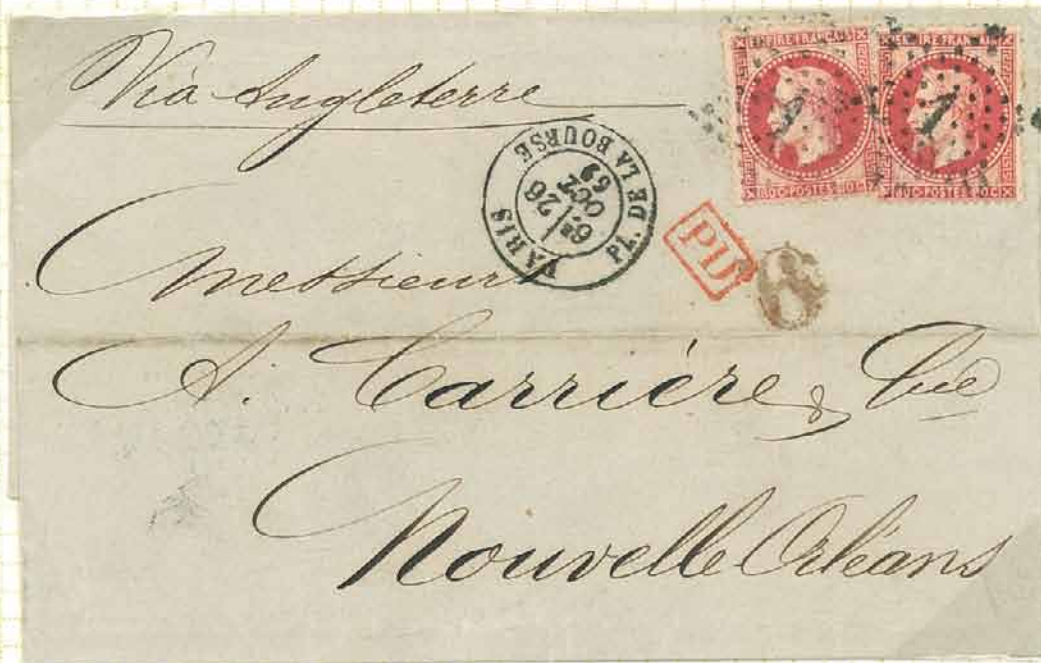 Via Angleterre
EMPIRE FRANÇAIS
80C·POSTES·80C
1
EMPIRE FRANÇAIS
80C·POSTES·80C
1
PARIS PL. DE LA BOURSE
6E
28
OCT
69
PD
8
Messieurs
A. Carrière & Cie
Nouvelle Orléans